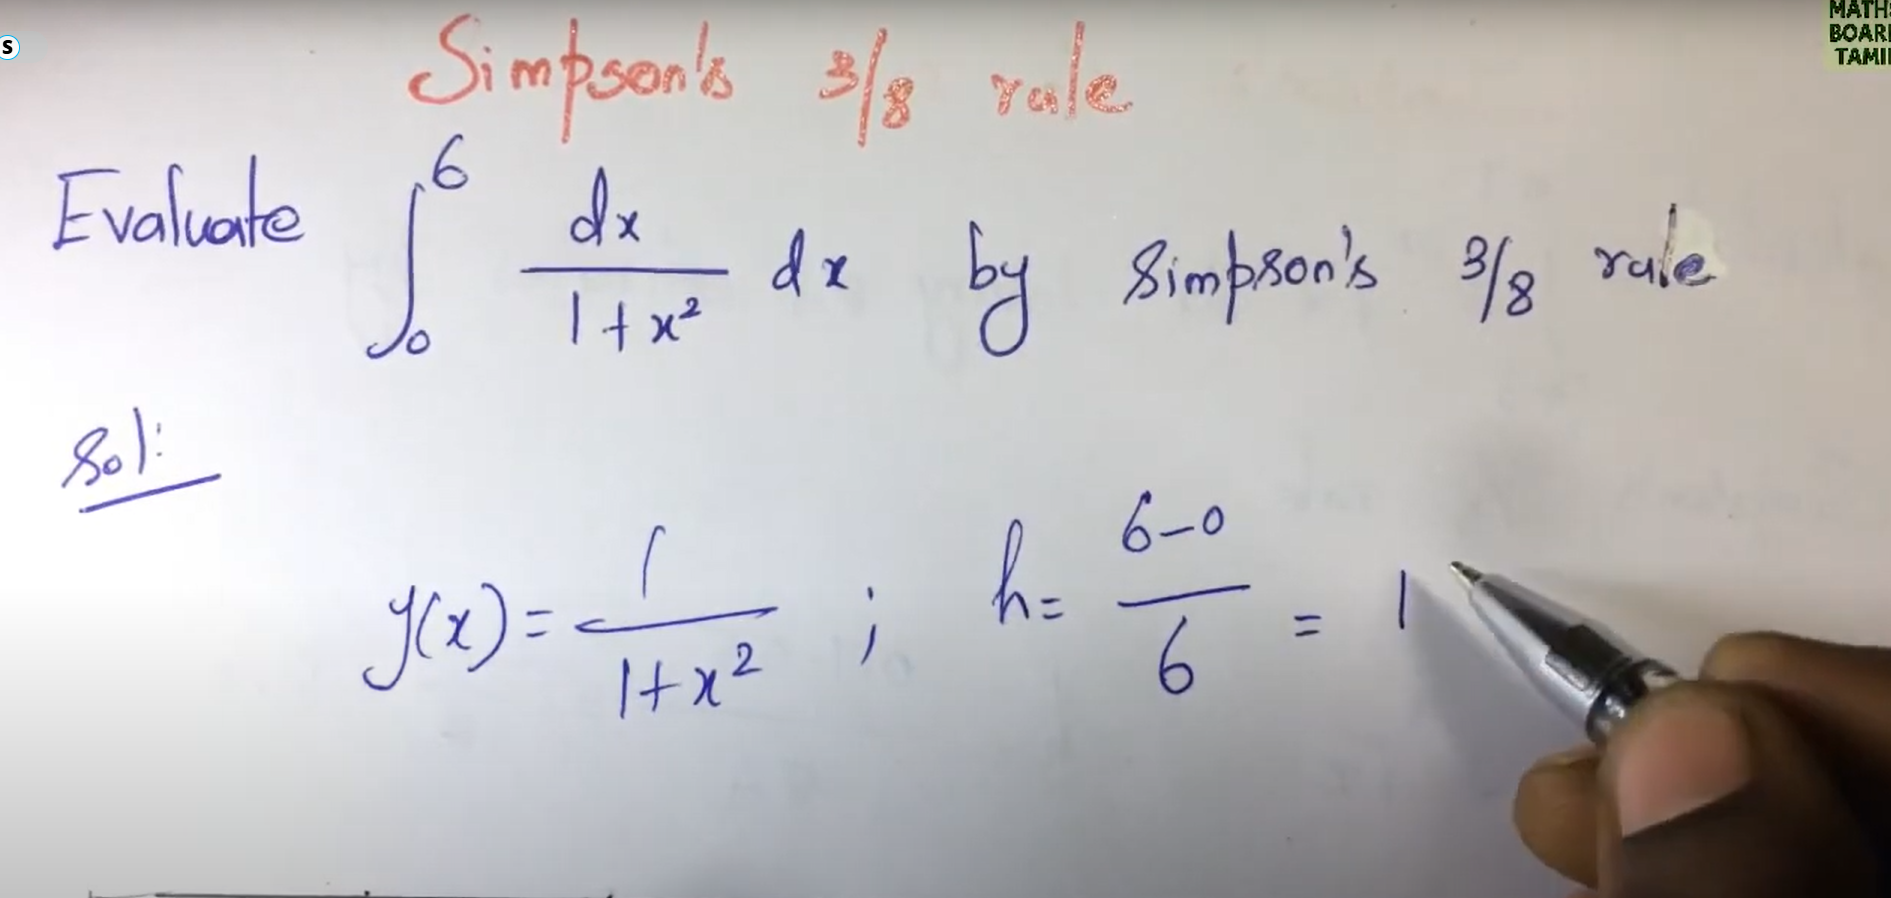 MATHS
BOARD
TAMIL
S
Simpson's 3/8 rule
Evaluate ∫₀⁶ dx/(1+x²) dx by Simpson's 3/8 rule
Sol:
y(x) = 1/(1+x²) ; h = (6-0)/6 = 1